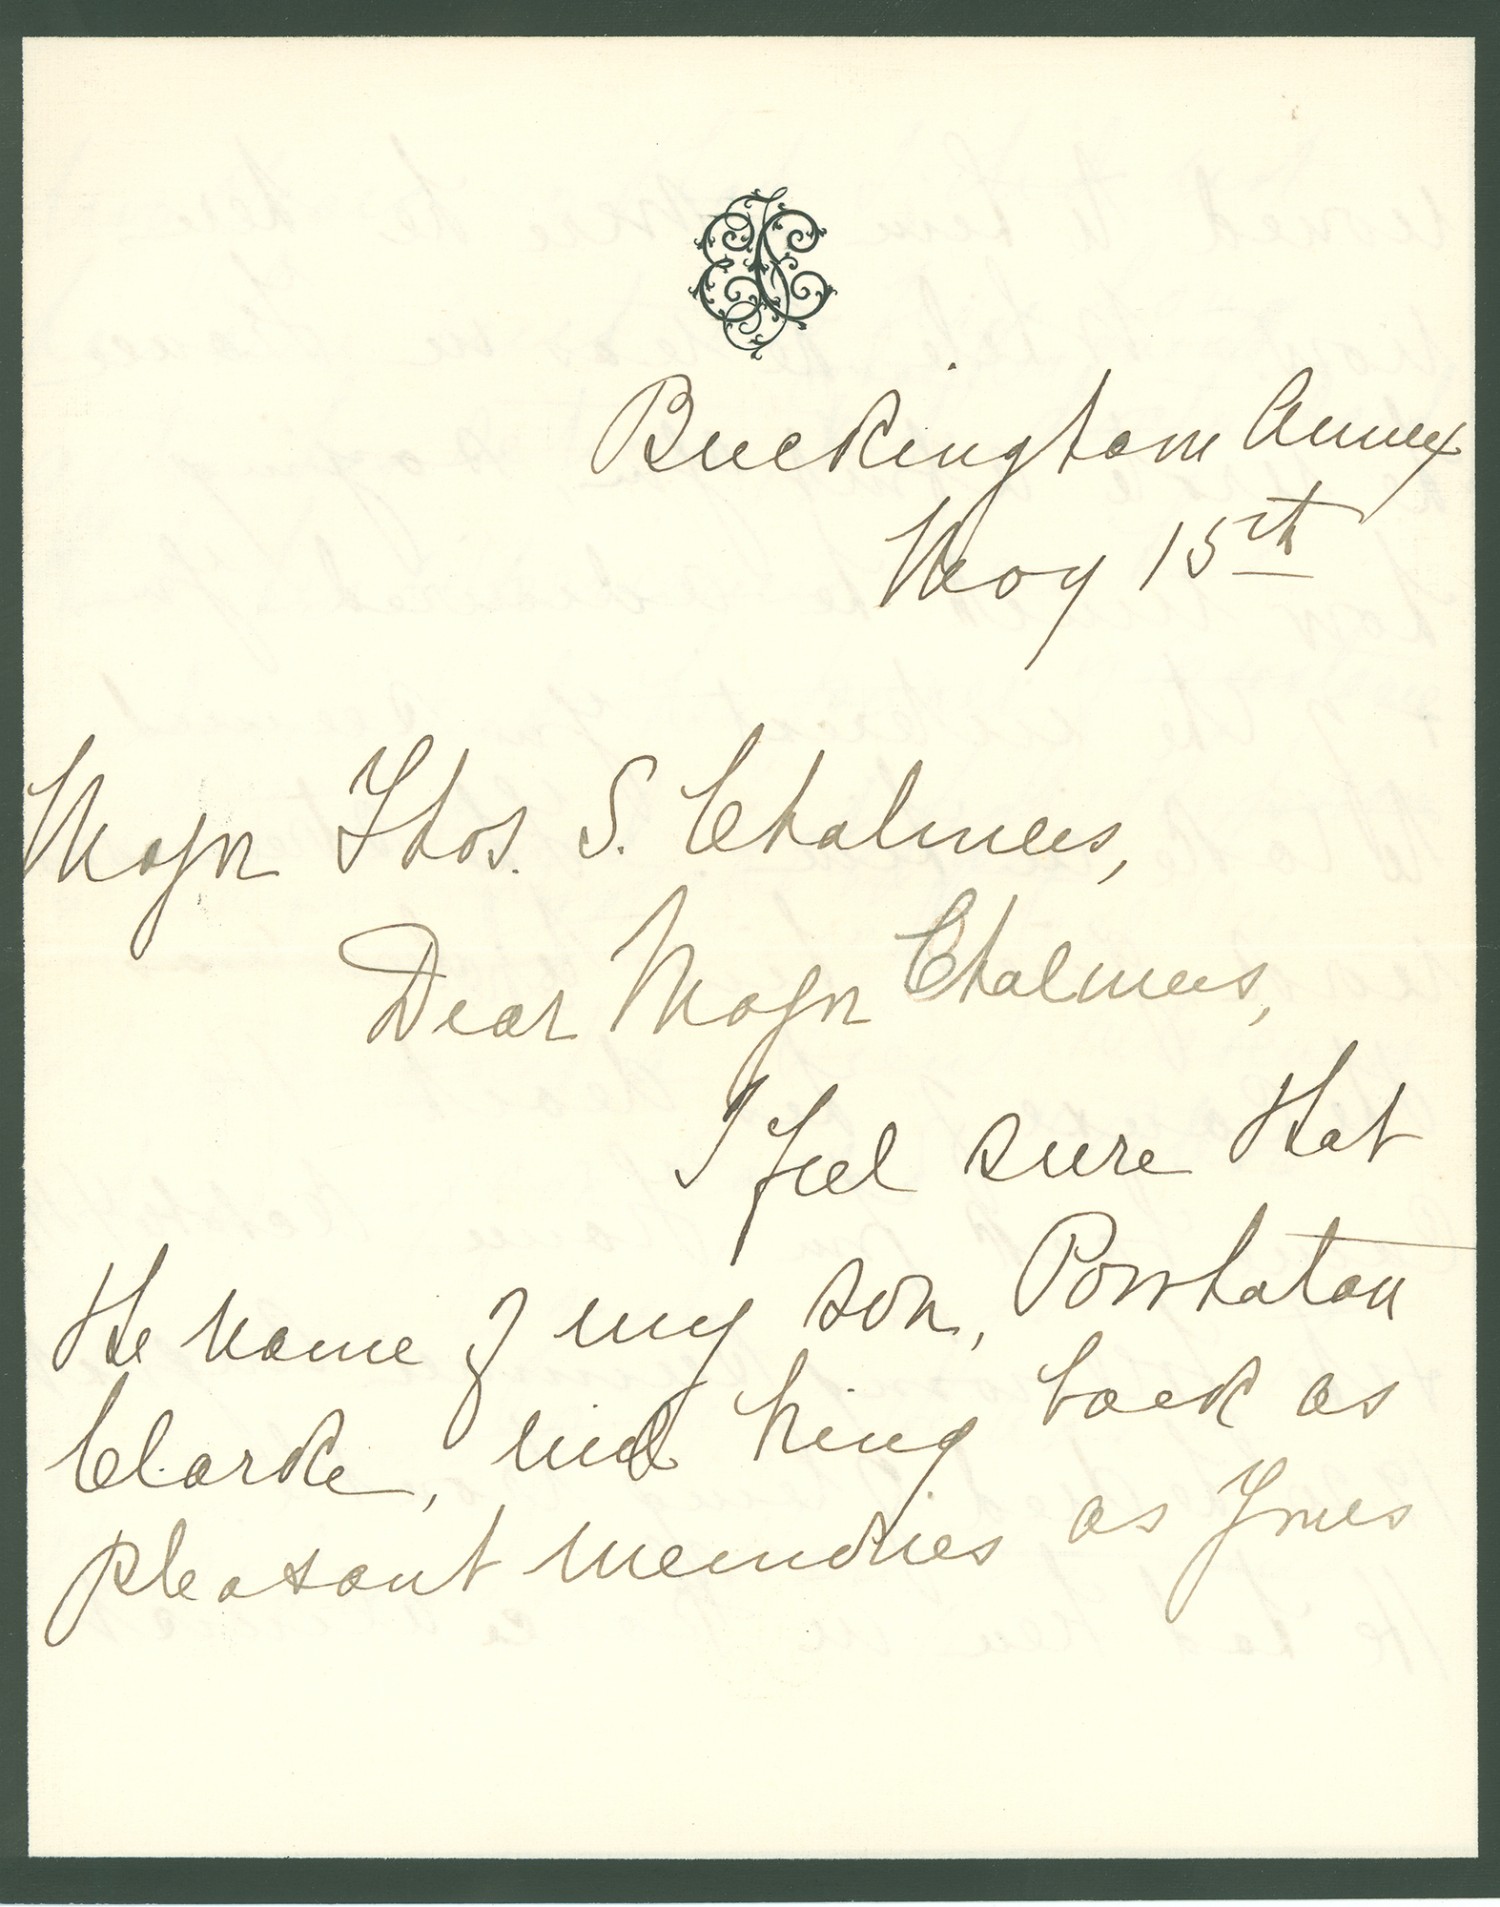 Buckingham Annex
May 15th
Major Thos. S. Chalmers,
Dear Major Chalmers,
I feel sure that
the name of my son, Powhatan
Clarke, will bring back as
pleasant memories as yours